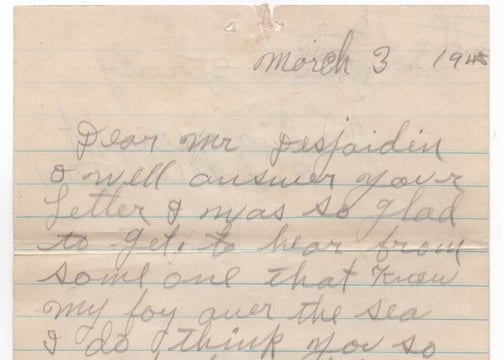 March 3 194
Dear Mr Desjardin
I well answer your
Letter I was so glad
to get, to hear from
some one that Know
my foy over the sea
I do think you so